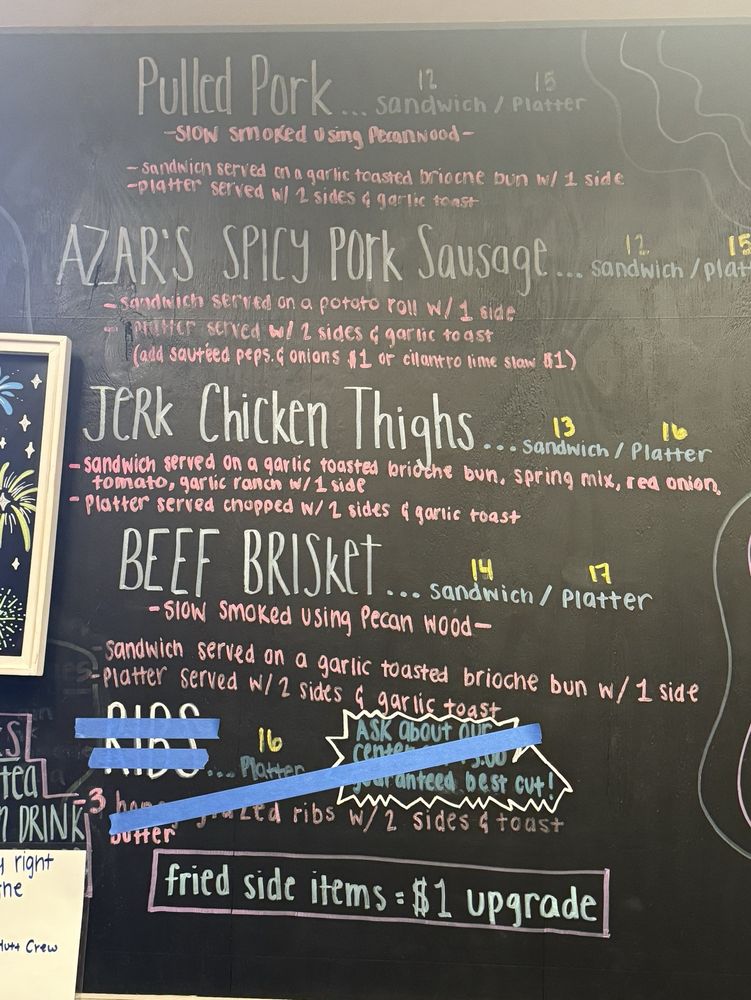 12 15
Pulled Pork... Sandwich / Platter
-Slow smoked using Pecanwood-
-sandwich served on a garlic toasted brioche bun w/ 1 side
-platter served w/ 2 sides & garlic toast
12 15
AZAR'S SPICY Pork Sausage... sandwich / plat
-sandwich served on a potato roll w/ 1 side
- platter served w/ 2 sides & garlic toast
(add sautéed peps. & onions $1 or cilantro lime slaw $1)
13 16
JERK Chicken Thighs... sandwich / Platter
-sandwich served on a garlic toasted brioche bun, spring mix, red onion,
tomato, garlic ranch w/ 1 side
- Platter served chopped w/ 2 sides & garlic toast
14 17
BEEF BRISket... sandwich / Platter
-Slow smoked using Pecan wood-
-sandwich served on a garlic toasted brioche bun w/ 1 side
-Platter served w/ 2 sides & garlic toast
RIBS... 16 Platter
ASK about our
best cut!
-3 ribs w/ 2 sides & toast
butter
fried side items = $1 upgrade
tea
DRINK
right
Crew